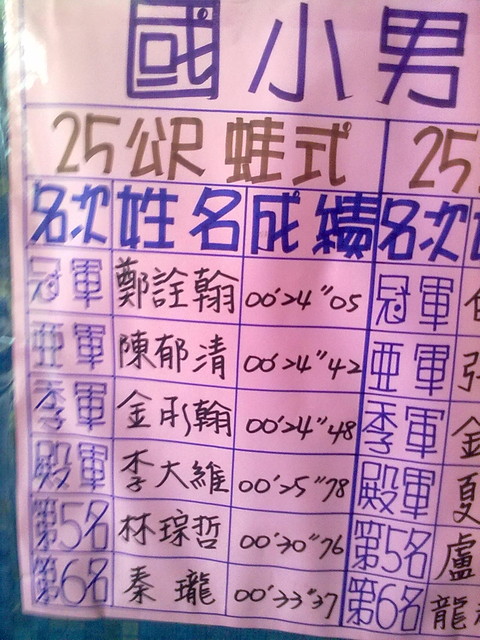 國小男
25公尺蛙式 25
名次 姓名 成績 名次
冠軍 鄭詮翰 00'24"05 冠軍
亞軍 陳郁清 00'24"42 亞軍
季軍 金彤翰 00'24"48 季軍 金
殿軍 李大維 00'25"78 殿軍 夏
第5名 林琮哲 00'30"76 第5名 盧
第6名 秦瓏 00'33"37 第6名 龍